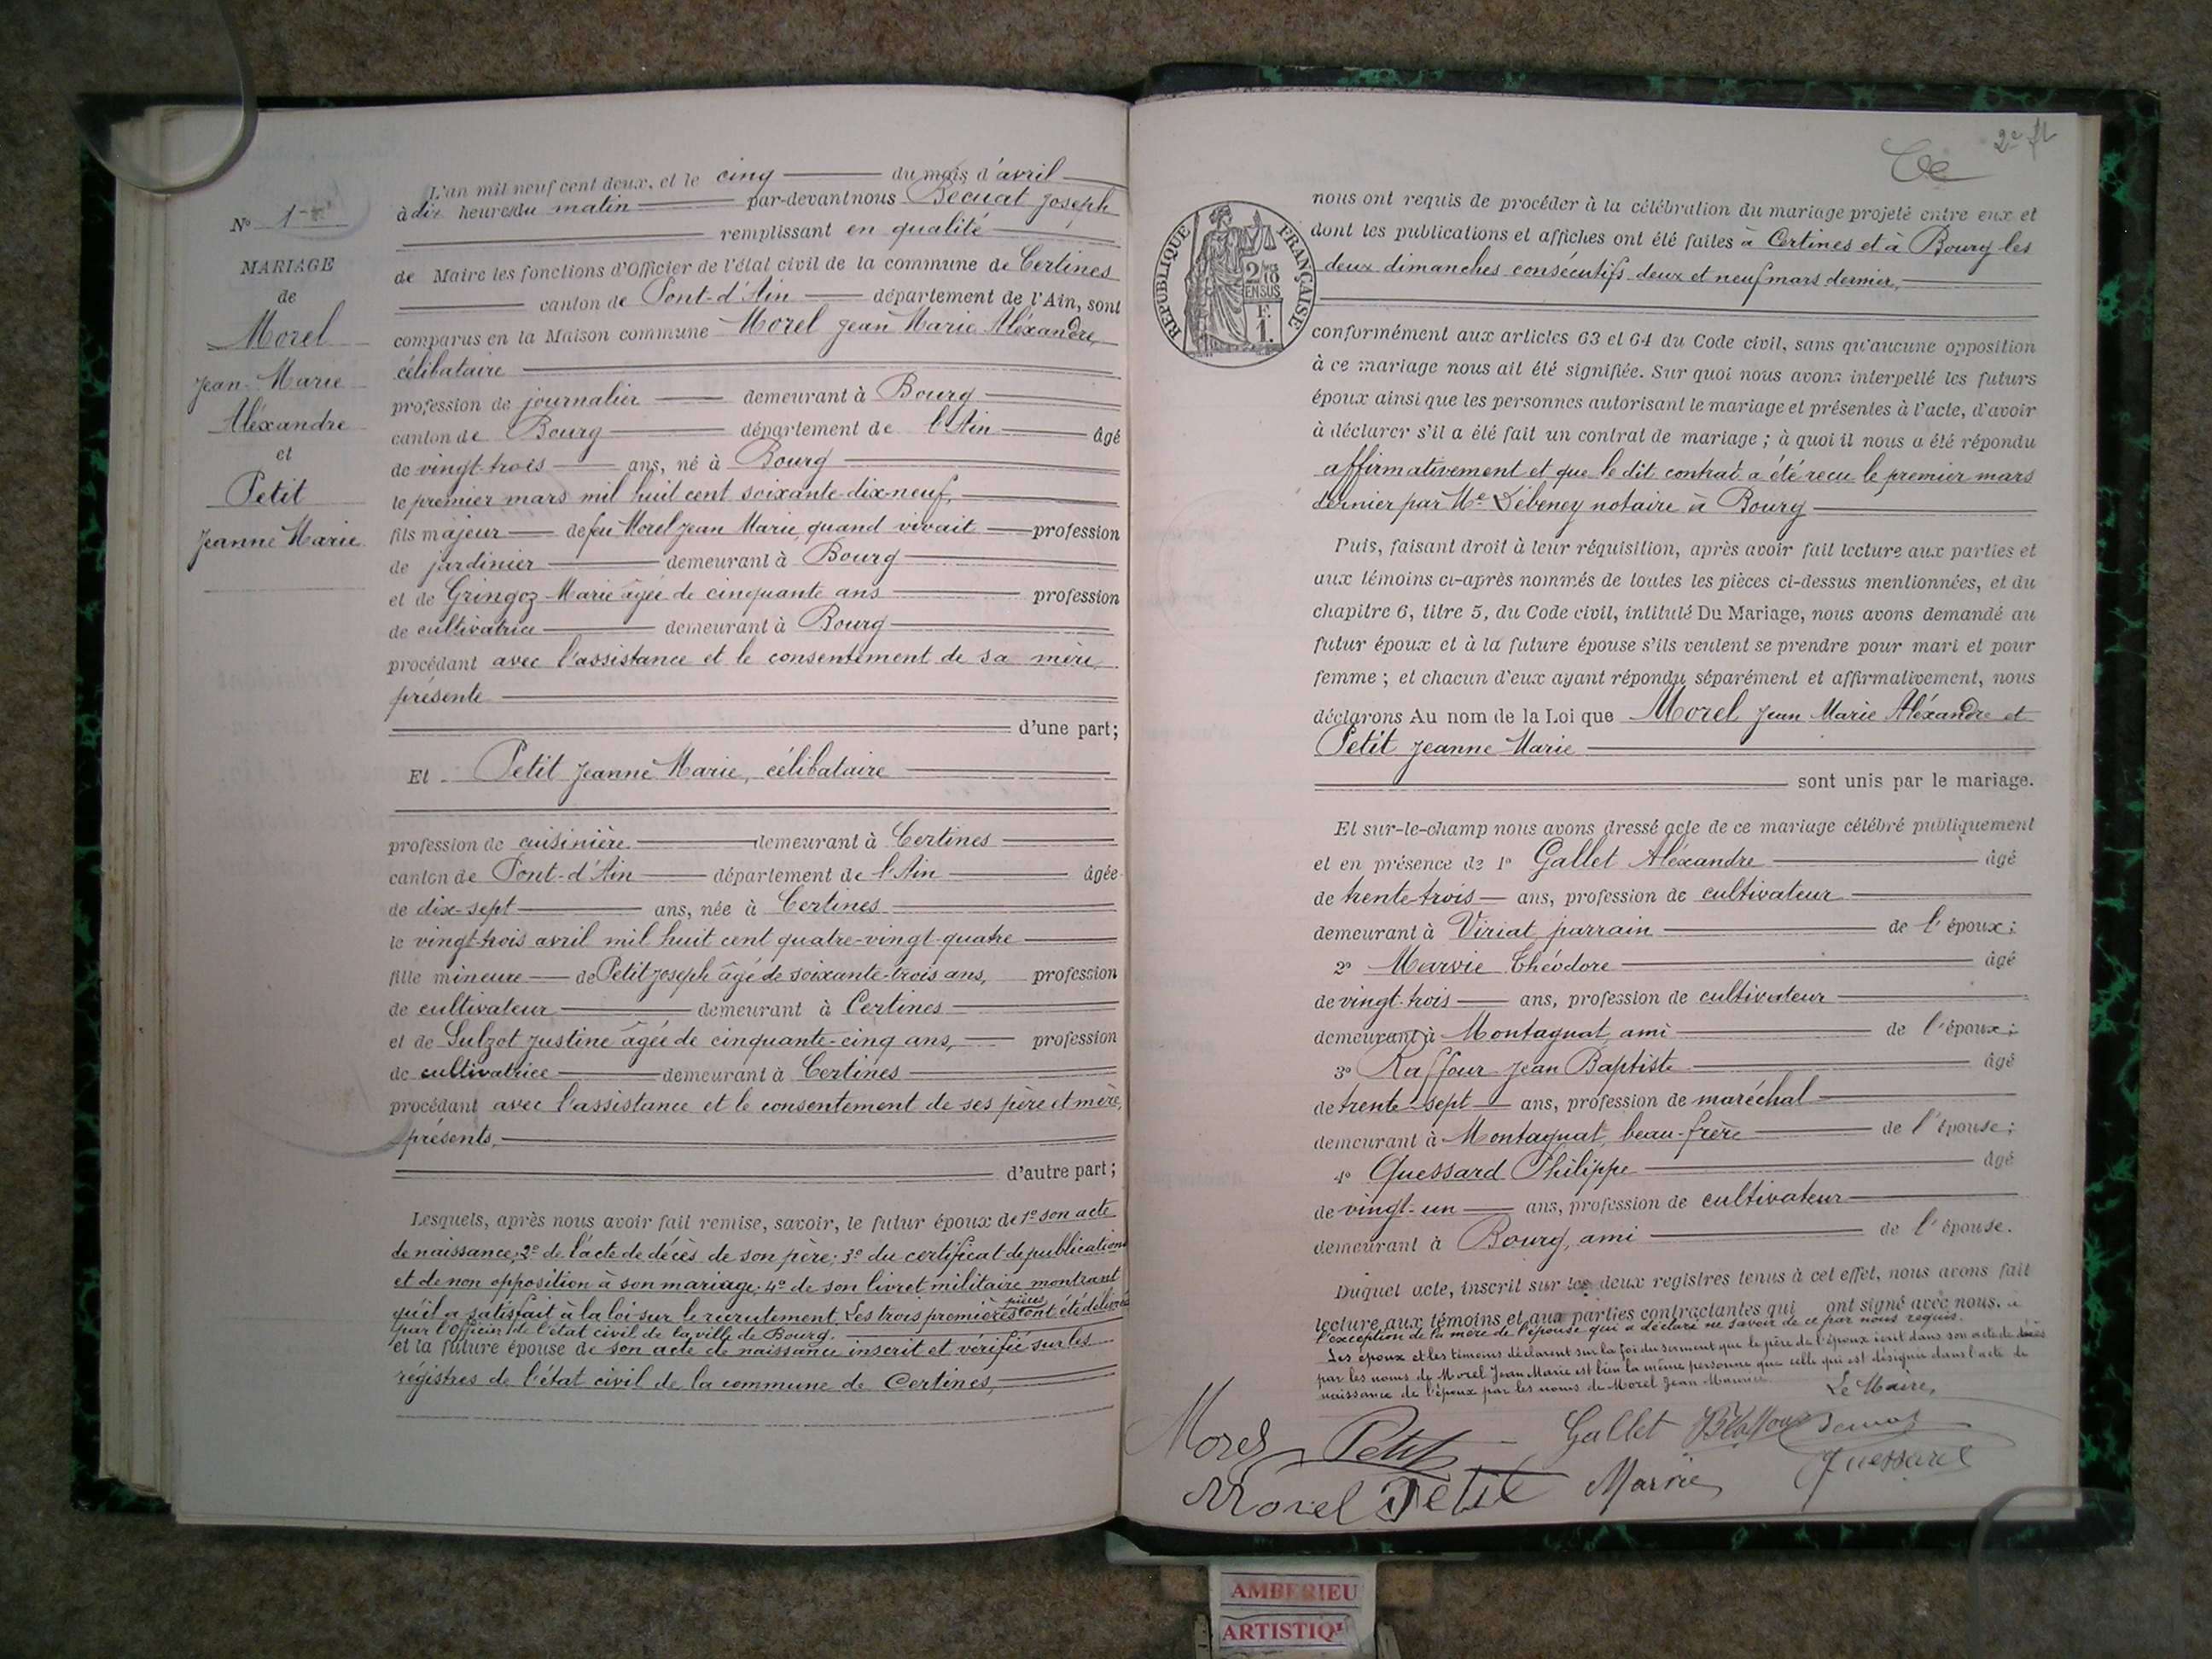 N° 1
MARIAGE
de
Morel
Jean-Marie
Aléxandre
et
Petit
Jeanne Marie
L'an mil neuf cent deux, et le cinq du mois d'avril
à dix heures du matin par-devant nous Becuat Joseph
remplissant en qualité
de Maire les fonctions d'Officier de l'état civil de la commune de Certines
canton de Pont-d'Ain département de l'Ain, sont
comparus en la Maison commune Morel Jean Marie Aléxandre,
célibataire
profession de journalier demeurant à Bourg
canton de Bourg département de l'Ain âgé
de vingt-trois ans, né à Bourg
le premier mars mil huit cent soixante-dix-neuf,
fils majeur de feu Morel Jean Marie, quand vivait profession
de jardinier demeurant à Bourg
et de Gringoz Marie âgée de cinquante ans profession
de cultivatrice demeurant à Bourg
procédant avec l'assistance et le consentement de sa mère,
présente
d'une part;
Et Petit Jeanne Marie, célibataire
profession de cuisinière demeurant à Certines
canton de Pont-d'Ain département de l'Ain âgée
de dix-sept ans, née à Certines
le vingt-trois avril mil huit cent quatre-vingt-quatre
fille mineure de Petit Joseph âgé de soixante-trois ans, profession
de cultivateur demeurant à Certines
et de Sulzot Justine âgée de cinquante-cinq ans, profession
de cultivatrice demeurant à Certines
procédant avec l'assistance et le consentement de ses père et mère,
présents,
d'autre part;
Lesquels, après nous avoir fait remise, savoir, le futur époux de 1° son acte
de naissance; 2° de l'acte de décès de son père; 3° du certificat de publications
et de non opposition à son mariage; 4° de son livret militaire montrant
qu'il a satisfait à la loi sur le recrutement. Les trois premières pièces ont été délivrées
par l'Officier de l'état civil de la ville de Bourg.
et la future épouse de son acte de naissance inscrit et vérifié sur les
régistres de l'état civil de la commune de Certines,
2e fl
RÉPUBLIQUE FRANÇAISE
2/10
EN SUS
F.
1.
nous ont requis de procéder à la célébration du mariage projeté entre eux et
dont les publications et affiches ont été faites à Certines et à Bourg les
deux dimanches consécutifs deux et neuf mars dernier,
conformément aux articles 63 et 64 du Code civil, sans qu'aucune opposition
à ce mariage nous ait été signifiée. Sur quoi nous avons interpellé les futurs
époux ainsi que les personnes autorisant le mariage et présentes à l'acte, d'avoir
à déclarer s'il a été fait un contrat de mariage; à quoi il nous a été répondu
affirmativement et que le dit contrat a été reçu le premier mars
dernier par Me Debeney notaire à Bourg
Puis, faisant droit à leur réquisition, après avoir fait lecture aux parties et
aux témoins ci-après nommés de toutes les pièces ci-dessus mentionnées, et du
chapitre 6, titre 5, du Code civil, intitulé Du Mariage, nous avons demandé au
futur époux et à la future épouse s'ils veulent se prendre pour mari et pour
femme; et chacun d'eux ayant répondu séparément et affirmativement, nous
déclarons Au nom de la Loi que Morel Jean Marie Aléxandre et
Petit Jeanne Marie
sont unis par le mariage.
Et sur-le-champ nous avons dressé acte de ce mariage célébré publiquement
et en présence de 1° Gallet Aléxandre âgé
de trente-trois ans, profession de cultivateur
demeurant à Viriat parrain de l'époux;
2° Marvie Théodore âgé
de vingt-trois ans, profession de cultivateur
demeurant à Montagnat, ami de l'époux;
3° Raffour Jean Baptiste âgé
de trente-sept ans, profession de maréchal
demeurant à Montagnat, beau-frère de l'épouse;
4° Quessard Philippe âgé
de vingt-un ans, profession de cultivateur
demeurant à Bourg, ami de l'épouse.
Duquel acte, inscrit sur les deux registres tenus à cet effet, nous avons fait
lecture aux témoins et aux parties contractantes qui ont signé avec nous, à
l'exception de la mère de l'épouse qui a déclaré ne savoir de ce par nous requis.
Les époux et les témoins déclarent sur la foi du serment que le père de l'époux écrit dans son acte de décès
par les noms de Morel Jean Marie est bien la même personne que celle qui est désignée dans l'acte de
naissance de l'époux par les noms de Morel Jean
Le Maire,
Morel Petit Gallet
Morel Petit Marvie Quessard
AMBERIEU
ARTISTIQ